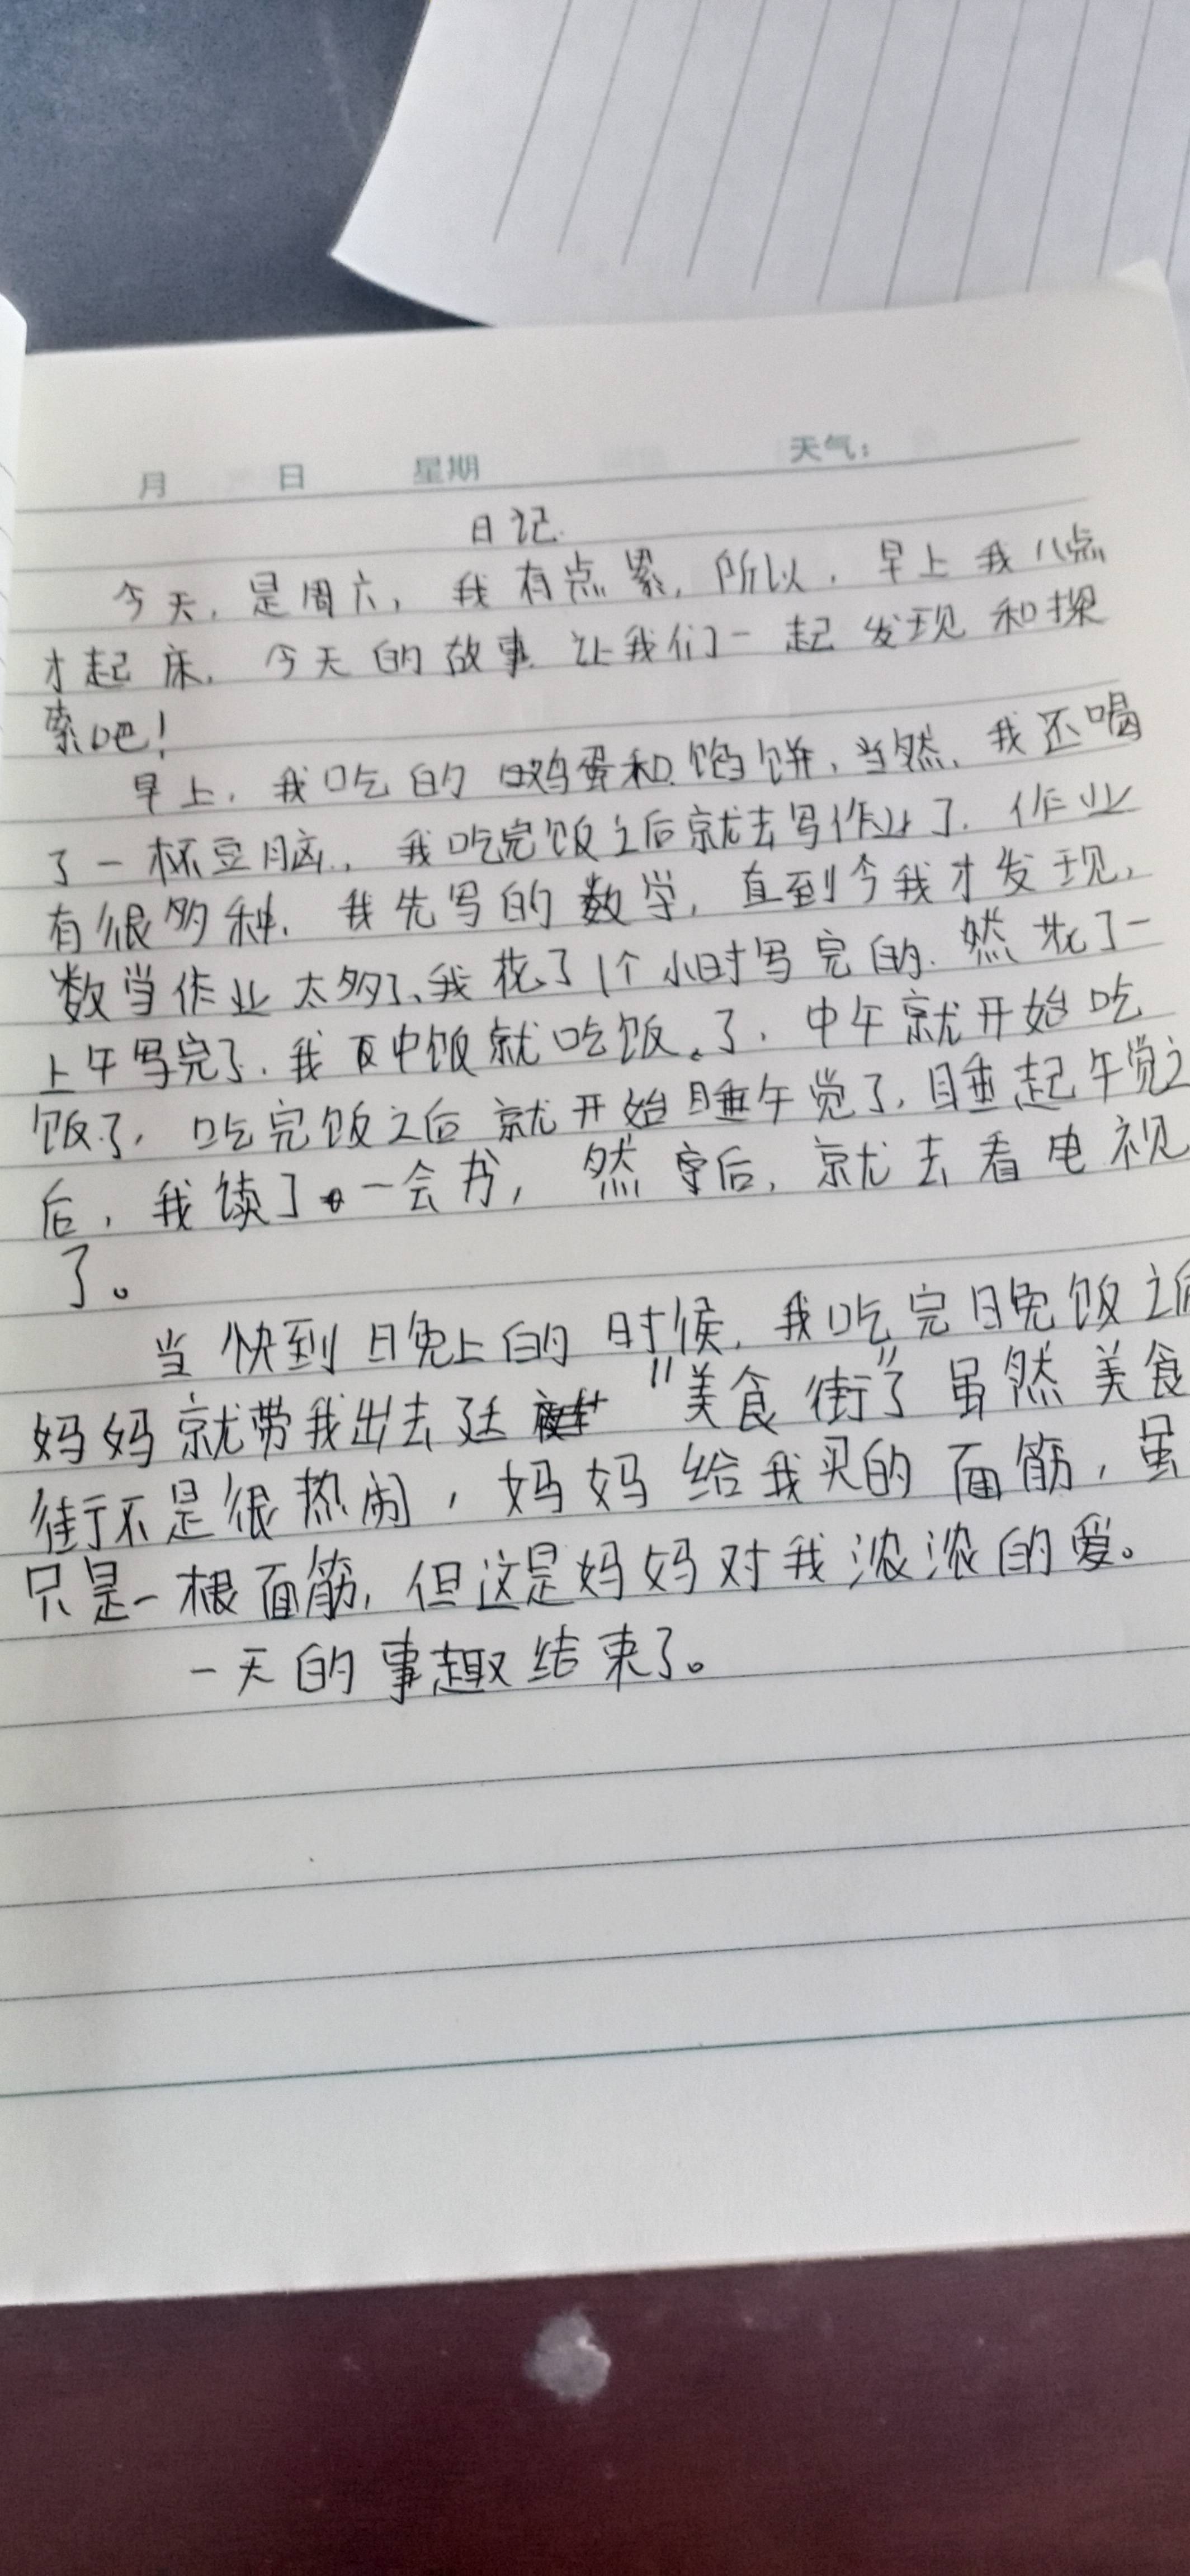 月 日 星期 天气:
日记
今天,是周六,我有点累,所以,早上我八点
才起床,今天的故事让我们一起发现和探
索吧!
早上,我吃的鸡蛋和馅饼,当然,我还喝
了一杯豆脑,我吃完饭之后就去写作业了,作业
有很多种,我先写的数学,直到今我才发现,
数学作业太多了、我花了1个小时写完的.然花了一
上午写完了,我中饭就吃饭。了,中午就开始吃
饭了,吃完饭之后就开始睡午觉了,睡起午觉之
后,我读了一会书,然后,就去看电视
了。
当快到晚上的时候,我吃完晚饭之后
妈妈就带我出去廷"美食街"了虽然美食
街不是很热闹,妈妈给我买的面筋,虽
只是一根面筋,但这是妈妈对我浓浓的爱。
一天的事趣结束了。